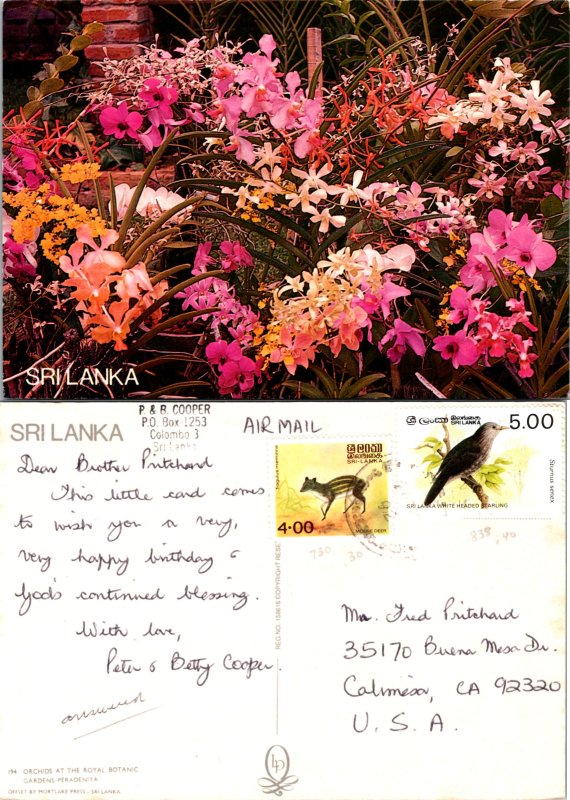 SRI LANKA
SRI LANKA
P & B. COOPER
P.O. Box 1253
Colombo 3
Sri Lanka
AIR MAIL
Dear Brother Pritchard
This little card comes
to wish you a very,
very happy birthday &
God's continued blessing.
With love,
Peter & Betty Cooper.
answered
194 ORCHIDS AT THE ROYAL BOTANIC
GARDENS-PERADENIYA
OFFSET BY MORTLAKE PRESS - SRI LANKA
REG. NO. 158616 COPYRIGHT RESE
ශ්‍රී ලංකා
இலங்கை
SRI LANKA
4.00
MOUSE DEER
ශ්‍රී ලංකා இலங்கை
SRI LANKA
5.00
Sturnus senex
SRI LANKA WHITE HEADED STARLING
730
30
838
.40
Mr. Fred Pritchard
35170 Buena Mesa Dr.
Calimesa, CA 92320
U. S. A.
LP